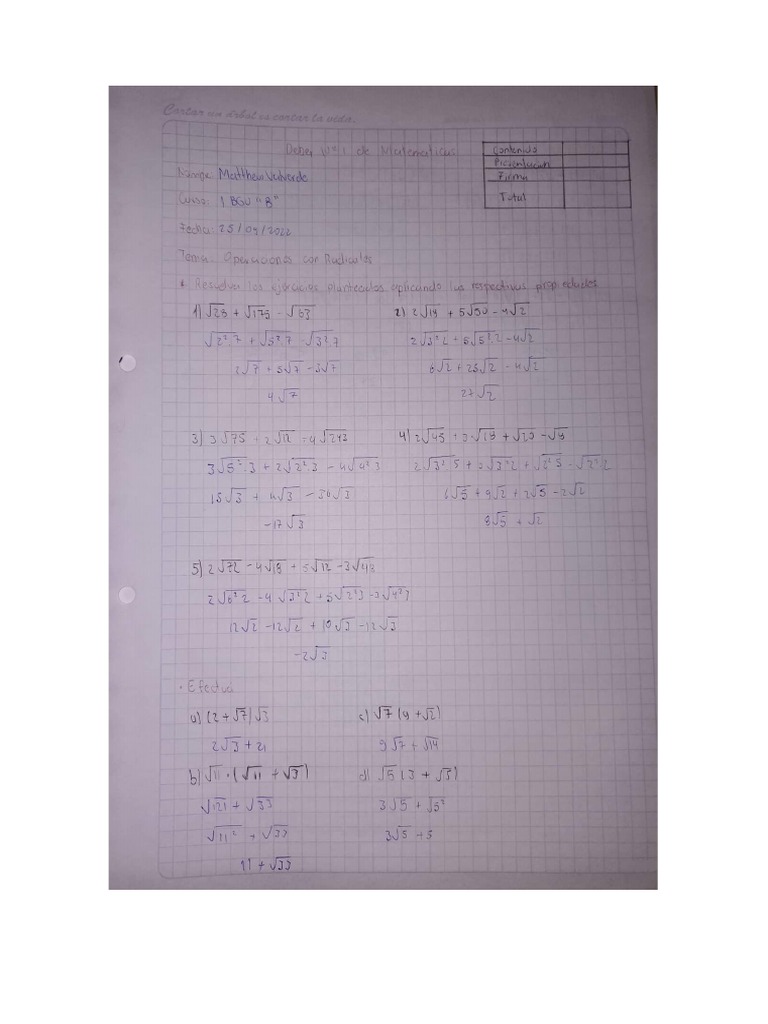 Cortar un árbol es cortar la vida.
Deber Nº1 de Matematicas
Contenido
Presentacion
Firma
Total
Matthew Valverde
Curso: 1 BGU "B"
Fecha: 25/09/2022
Tema: Operaciones con Radicales
* Resuelva los ejercicios planteados aplicando las respectivas propiedades
1) √28 + √175 - √63
√2².7 + √5².7 - √3².7
2√7 + 5√7 - 3√7
4√7
2) 2√18 + 5√50 - 4√2
2√3².2 + 5√5².2 - 4√2
6√2 + 25√2 - 4√2
27√2
3) 3√75 + 2√12 - 4√243
3√5².3 + 2√2².3 - 4√4²3
15√3 + 4√3 - 36√3
-17√3
4) 2√45 + 3√18 + √20 - √8
2√3².5 + 3√3²2 + √2².5 - √2².2
6√5 + 9√2 + 2√5 - 2√2
8√5 + √2
5) 2√72 - 4√18 + 5√12 - 3√48
2√6²2 - 4√3²2 + 5√2²3 - 3√4²3
12√2 - 12√2 + 10√3 - 12√3
-2√3
· Efectua
a) (2+√7)√3
2√3 + 21
b) √11 · (√11 + √3)
√121 + √33
√11² + √33
11 + √33
c) √7 (9 + √2)
9√7 + √14
d) √5 (3 + √3)
3√5 + √5²
3√5 + 5